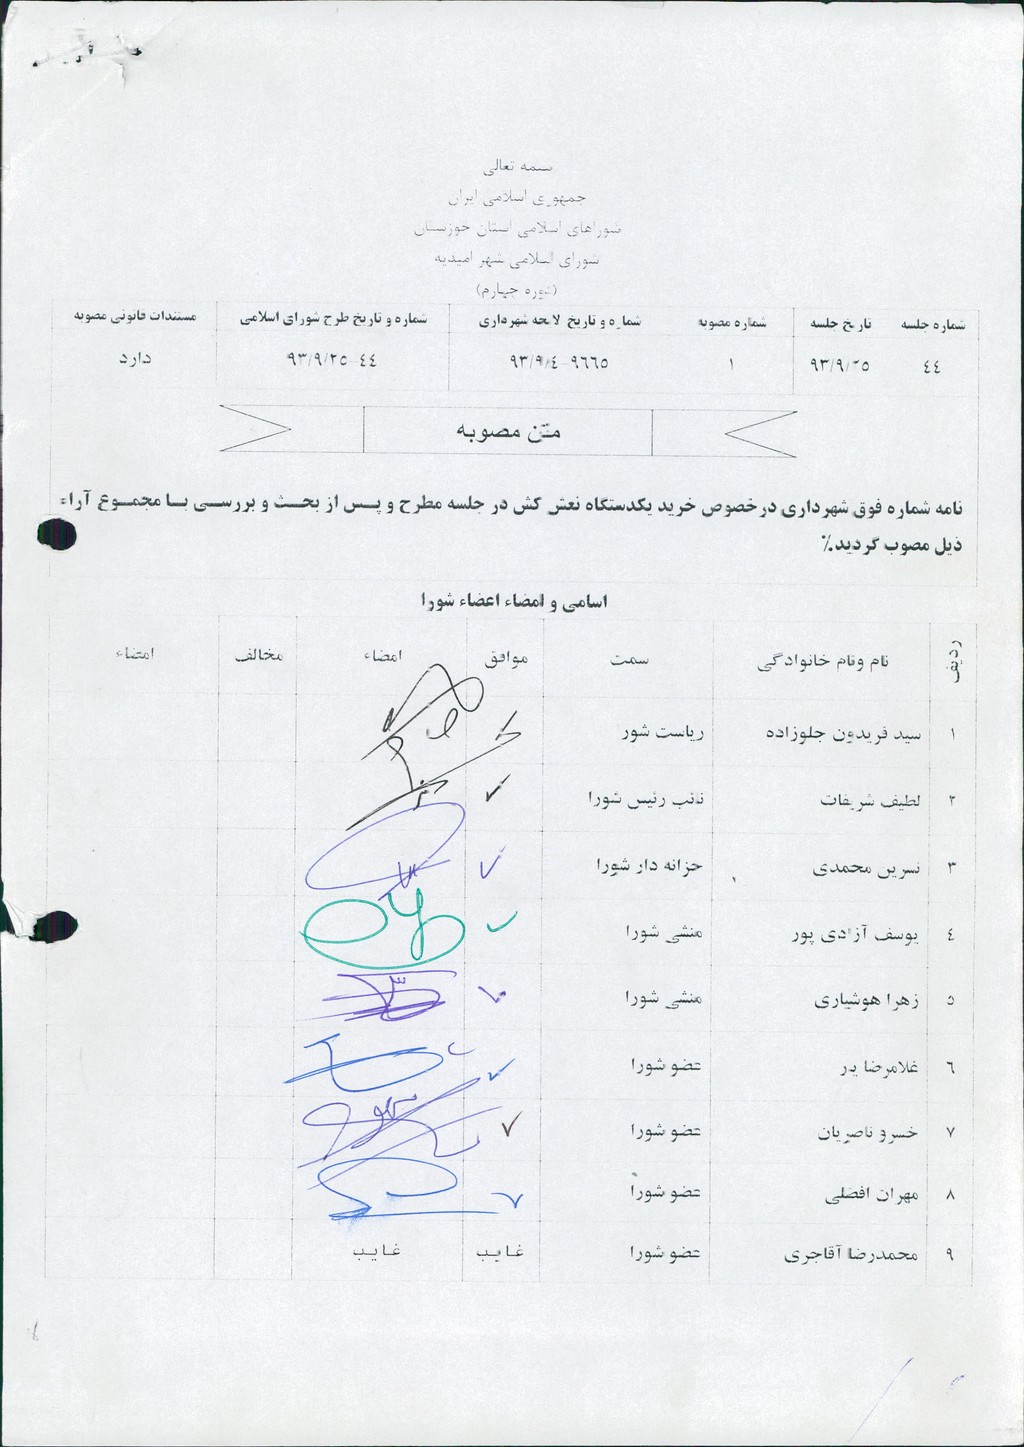 بسمه تعالی
جمهوری اسلامی ایران
شوراهای اسلامی استان خوزستان
شورای اسلامی شهر امیدیه
(دوره چهارم)
شماره جلسه تاریخ جلسه شماره مصوبه شماره و تاریخ لایحه شهرداری شماره و تاریخ طرح شورای اسلامی مستندات قانونی مصوبه
٤٤ ۹۳/۹/۲٥ ۱ ۹۳/۹/٤-۹٦٦٥ ۹۳/۹/۲٥-٤٤ دارد
متن مصوبه
نامه شماره فوق شهرداری درخصوص خرید یکدستگاه نعش کش در جلسه مطرح و پس از بحث و بررسی با مجموع آراء
ذیل مصوب گردید.٪
اسامی و امضاء اعضاء شورا
ردیف نام ونام خانوادگی سمت موافق امضاء مخالف امضاء
۱ سید فریدون جلوزاده ریاست شور
۲ لطیف شریفات نائب رئیس شورا
۳ نسرین محمدی خزانه دار شورا
٤ یوسف آزادی پور منشی شورا
٥ زهرا هوشیاری منشی شورا
٦ غلامرضا عضو شورا
۷ خسرو ناصریان عضو شورا
۸ مهران افضلی عضو شورا
۹ محمدرضا آقاجری عضو شورا غایب غایب